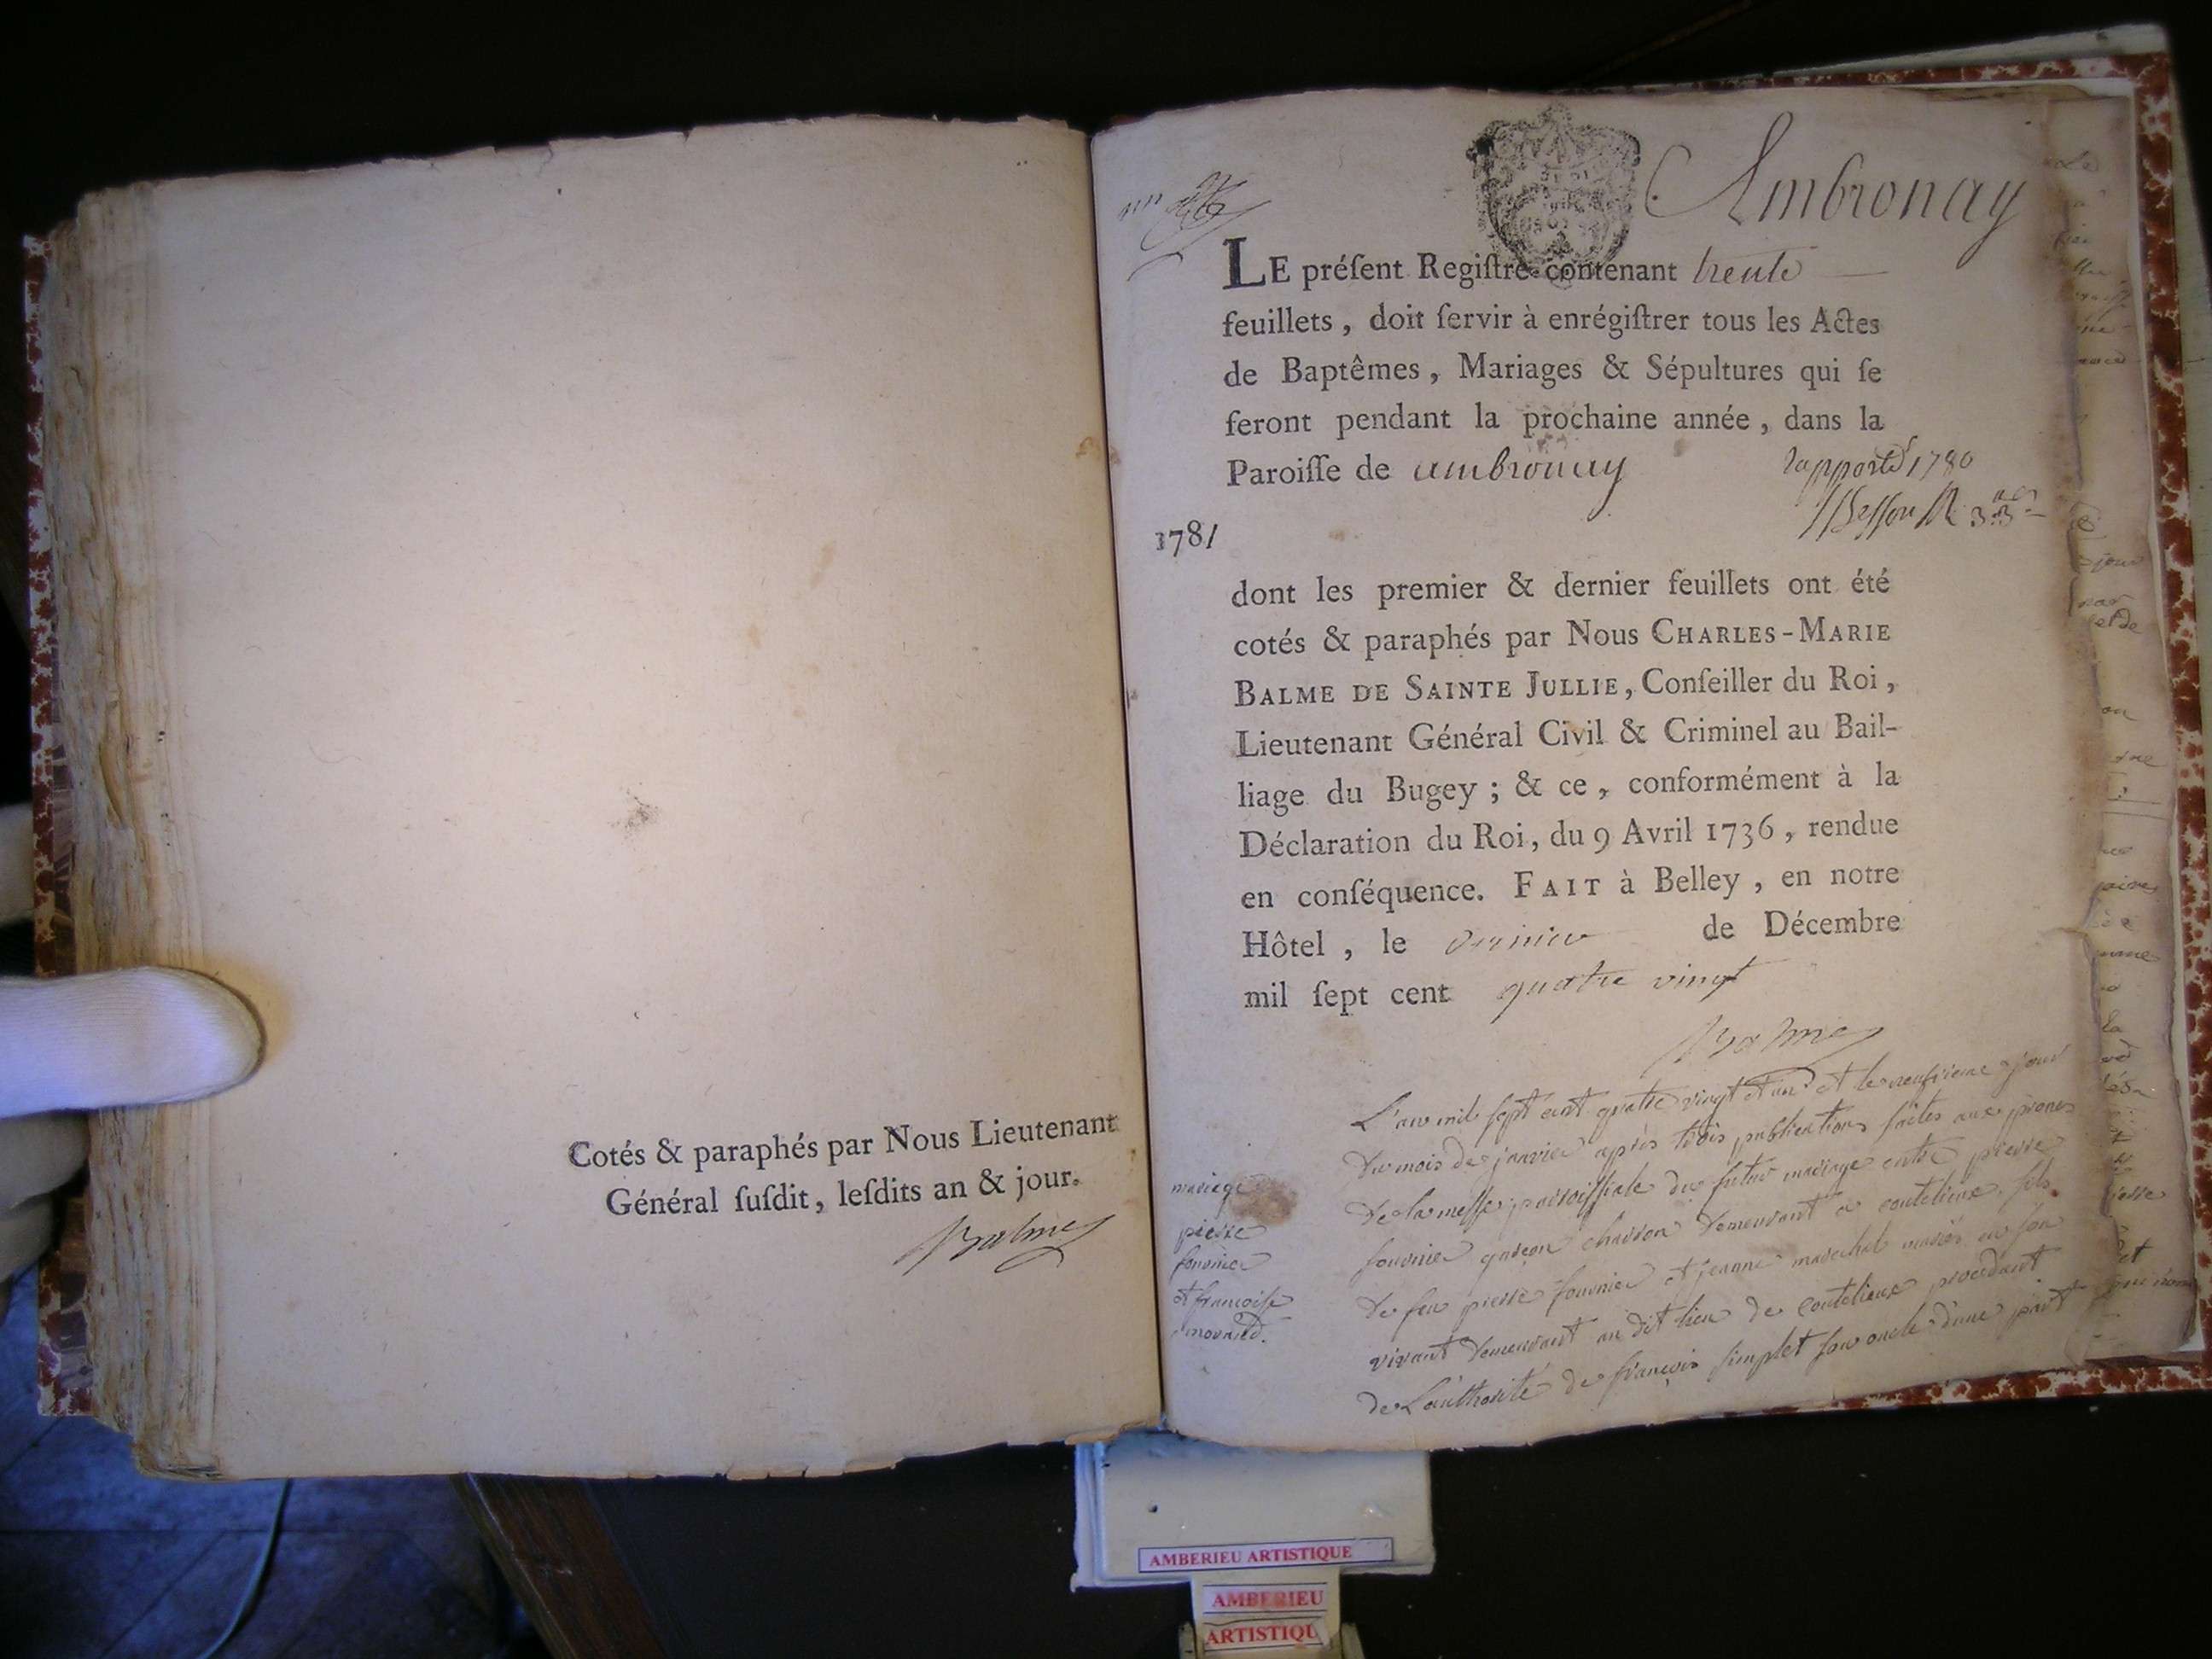 Cotés & paraphés par Nous Lieutenant
Général ſuſdit, leſdits an & jour.
Balme
Ambronay
LE préſent Regiſtre contenant trente
feuillets, doit ſervir à enrégiſtrer tous les Actes
de Baptêmes, Mariages & Sépultures qui ſe
feront pendant la prochaine année, dans la
Paroiſſe de ambronay
rapporté 1780
1781
dont les premier & dernier feuillets ont été
cotés & paraphés par Nous CHARLES-MARIE
BALME DE SAINTE JULLIE, Conſeiller du Roi,
Lieutenant Général Civil & Criminel au Bail-
liage du Bugey ; & ce, conformément à la
Déclaration du Roi, du 9 Avril 1736, rendue
en conſéquence. FAIT à Belley, en notre
Hôtel, le dernier de Décembre
mil ſept cent quatre vingt
Balme
mariage
pierre
fournier
et francoise
morand.
L'an mil sept cent quatre vingt et un et le neufvieme jour
du mois de janvier après trois publications faites aux prones
de la messe paroissiale du futur mariage entre pierre
fournier garçon charron demeurant a coutelieux fils
de feu pierre fournier et jeanne marechal mariés en son
vivant demeurant au dit lieu de coutelieux procedant
de L'authorité de françois simplet son oncle d'une part
AMBERIEU ARTISTIQUE
AMBERIEU
ARTISTIQU